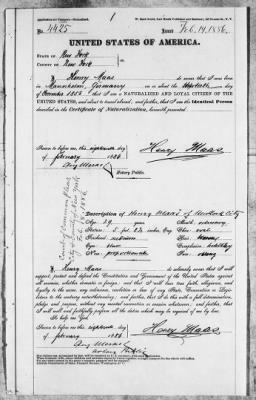 No. 4425
Issued Feb. 19, 1886.
UNITED STATES OF AMERICA.
STATE OF New York
COUNTY OF New York
I, Henry Maas do swear that I was born
in Mannheim, Germany on or about the day
of that I am a NATURALIZED AND LOYAL CITIZEN OF THE
UNITED STATES, and about to travel abroad; and further, that I am the Identical Person
described in the Certificate of Naturalization, herewith presented.
Sworn to before me, this eighteenth day
of february 1886
Henry Maas
Notary Public.
Court of Common Pleas
Description of Henry Maas of New York City
Age: 29 years
Mouth: ordinary
Stature: 5 feet inches, Eng.
Chin: oval
Forehead: medium
Hair: brown
Eyes: blue
Complexion: healthy
Nose: proportionate
Face:
I, Henry Maas do solemnly swear that I will
support, protect and defend the Constitution and Government of the United States against
all enemies, whether domestic or foreign; and that I will bear true faith, allegiance, and
loyalty to the same, any ordinance, resolution or law of any State, Convention or Legis-
lature to the contrary notwithstanding; and further, that I do this with a full determination,
pledge and purpose, without any mental reservation or evasion whatsoever; and further, that
I will well and faithfully perform all the duties which may be required of me by law.
So help me God.
Sworn to before me, this eighteenth day
of february 1886
Henry Maas